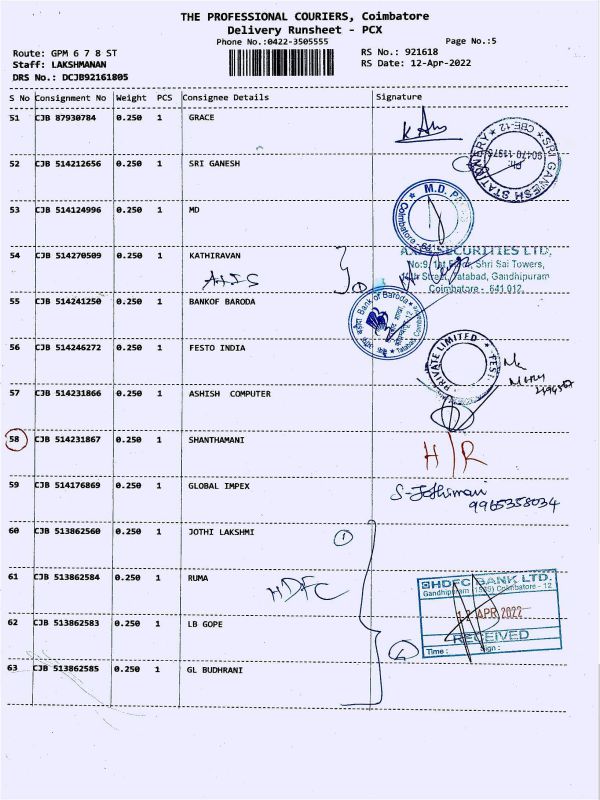 THE PROFESSIONAL COURIERS, Coimbatore
Delivery Runsheet - PCX
Phone No.:0422-3505555
Page No.:5
Route: GPM 6 7 8 ST
RS No.: 921618
Staff: LAKSHMANAN
RS Date: 12-Apr-2022
DRS No.: DCJB92161805
S No Consignment No Weight PCS Consignee Details Signature
51 CJB 87930784 0.250 1 GRACE
52 CJB 514212656 0.250 1 SRI GANESH
SRI GANESH STATIONERY
CBE-12
53 CJB 514124996 0.250 1 MD
M.D.
Coimbatore
54 CJB 514270509 0.250 1 KATHIRAVAN
AXIS SECURITIES LTD,
Shri Sai Towers,
Tatabad, Gandhipuram
Coimbatore - 641 012.
55 CJB 514241250 0.250 1 BANKOF BARODA
Bank of Baroda
56 CJB 514246272 0.250 1 FESTO INDIA
PRIVATE LIMITED
57 CJB 514231866 0.250 1 ASHISH COMPUTER
58 CJB 514231867 0.250 1 SHANTHAMANI
H/R
59 CJB 514176869 0.250 1 GLOBAL IMPEX
S-Jothimani
9965358034
60 CJB 513862560 0.250 1 JOTHI LAKSHMI
1
61 CJB 513862584 0.250 1 RUMA
HDFC
HDFC BANK LTD.
Gandhipuram (1539) Coimbatore - 12
12 APR 2022
RECEIVED
Time : Sign :
62 CJB 513862583 0.250 1 LB GOPE
63 CJB 513862585 0.250 1 GL BUDHRANI